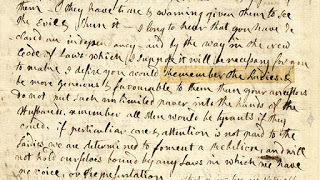 them. I they have time & warning given them to see
the Evil & shun it. — I long to hear that you have de
clared an independancy — and by the way in the new
Code of Laws which I suppose it will be necessary for you
to make I desire you would Remember the Ladies, &
be more generous & favourable to them than your ancestors
do not put such unlimited power into the hands of the
Husbands. remember all Men would be tyrants if they
could. if perticuliar care & attention is not paid to the
Ladies we are determined to foment a Rebelion, and will
not hold ourselves bound by any Laws in which we have
no voice, or Representation